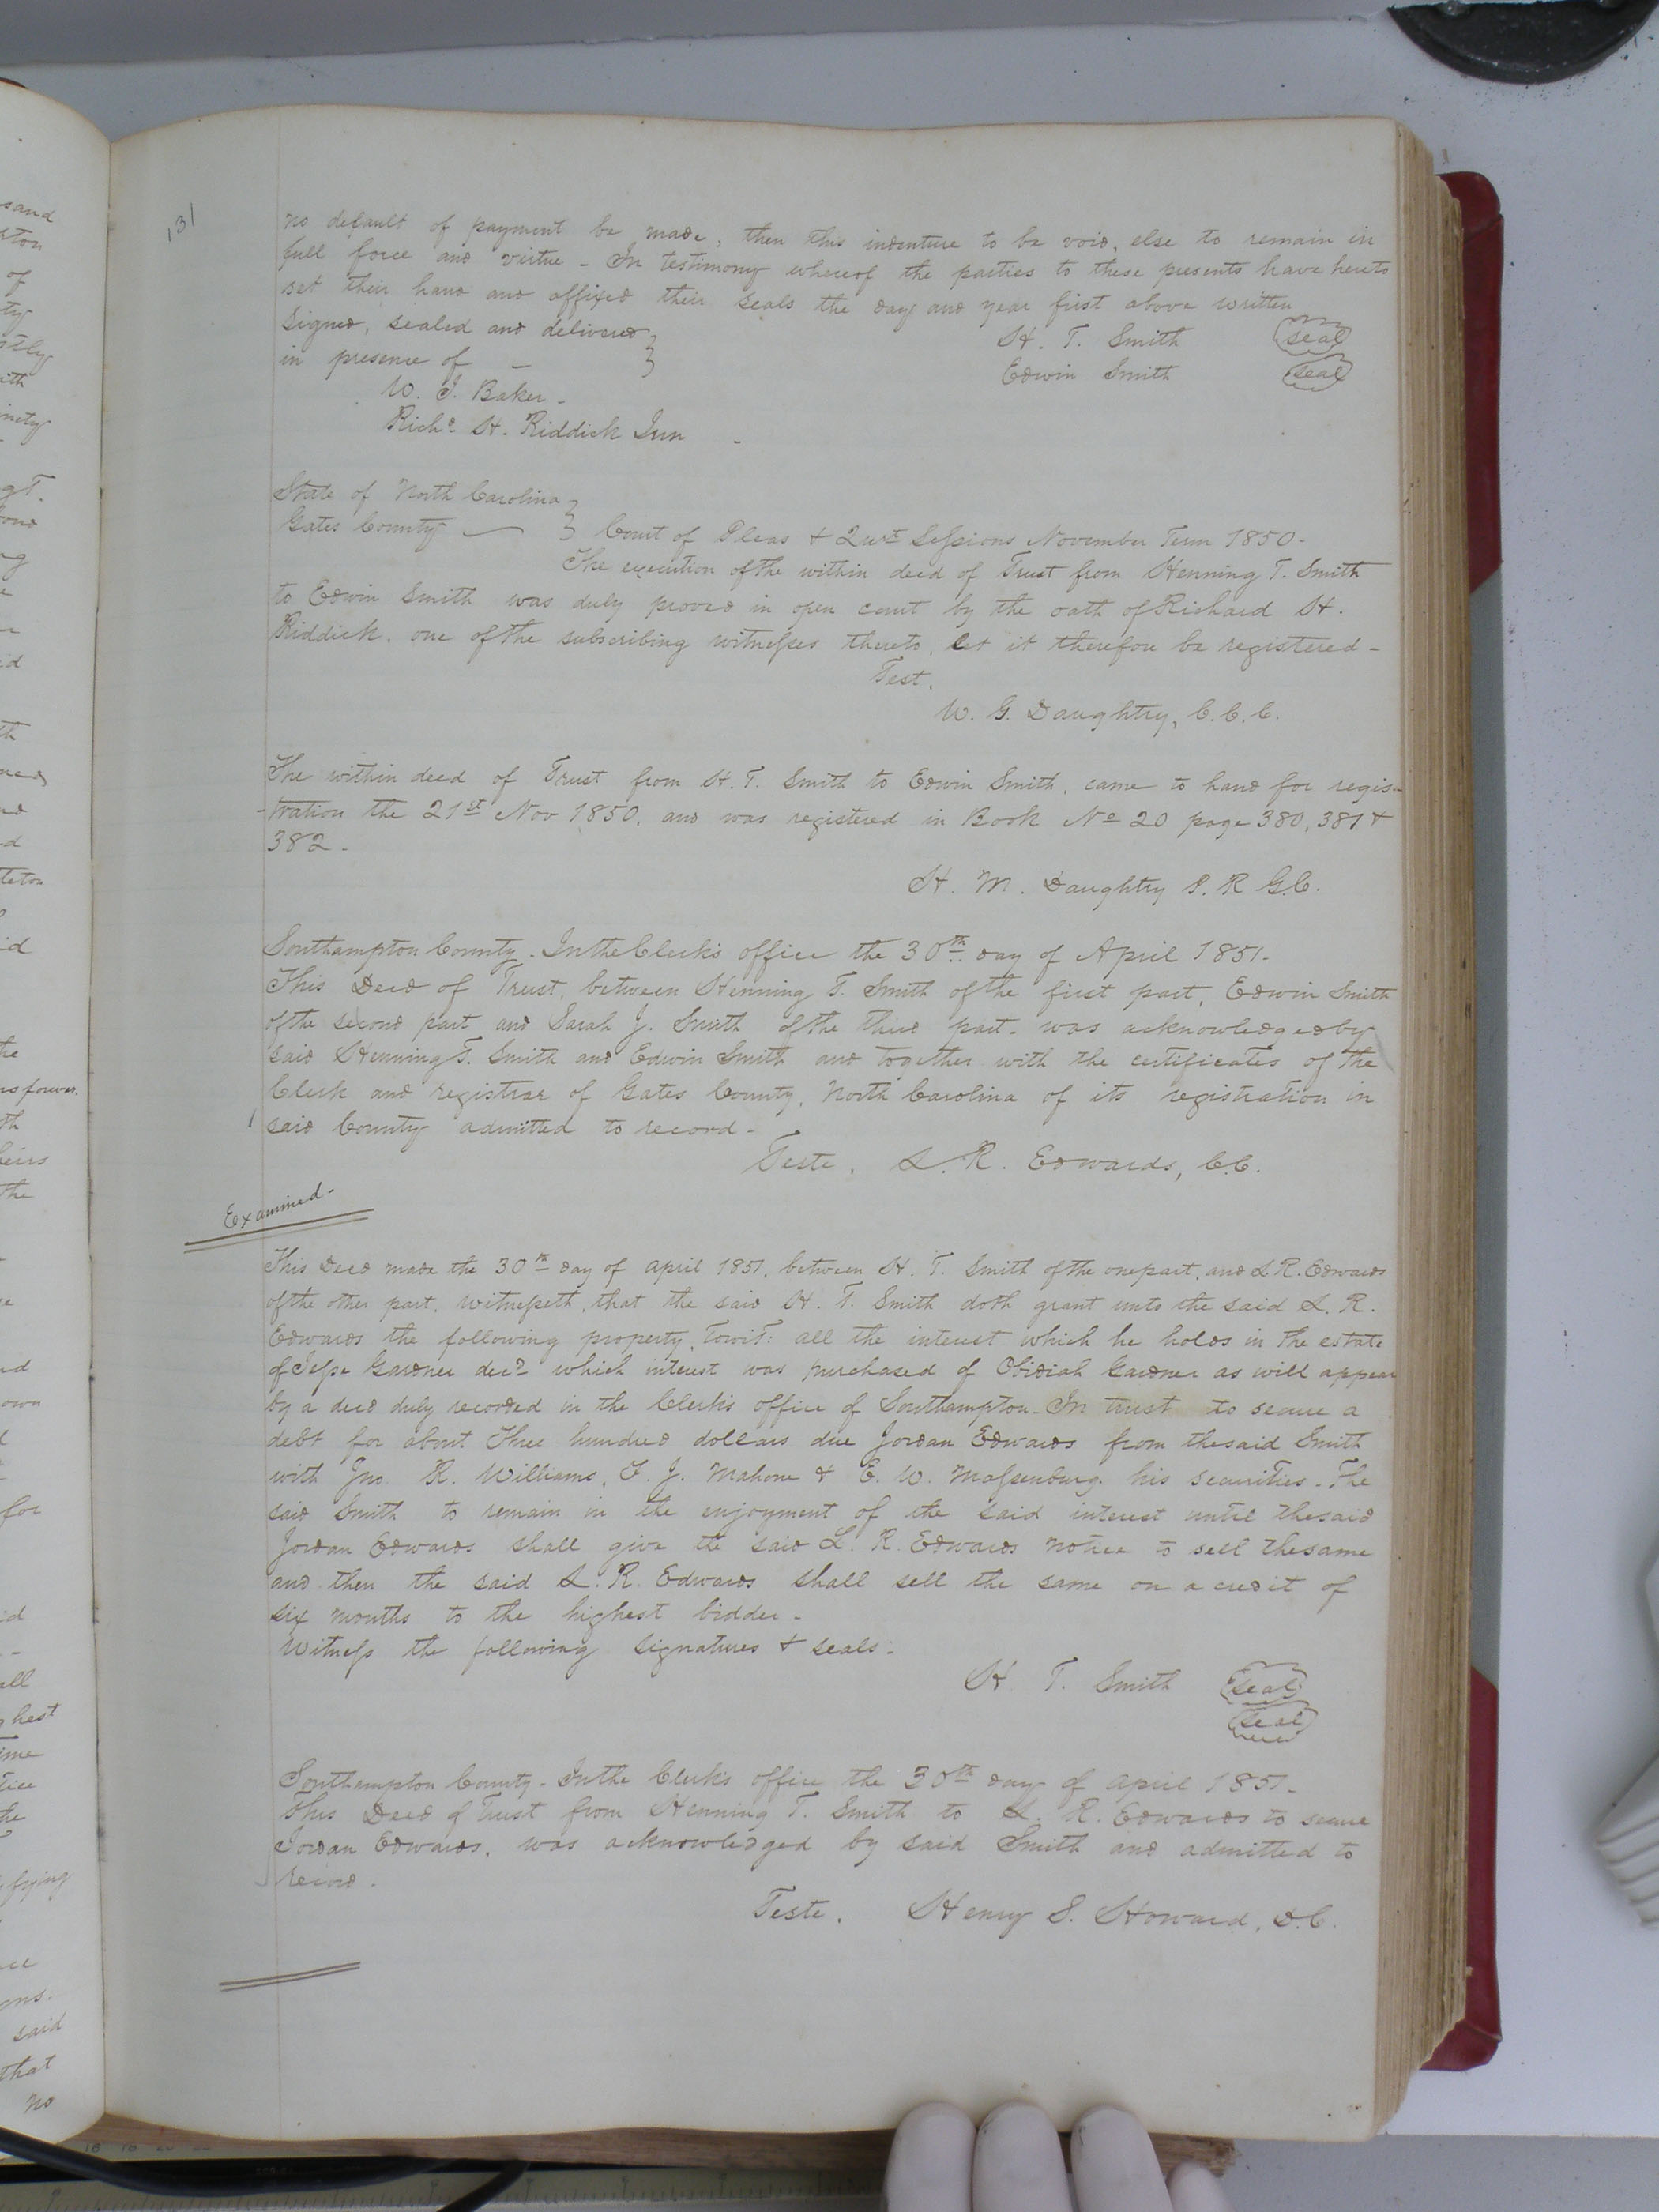 131
no default of payment be made, then this indenture to be void, else to remain in
full force and virtue - In testimony whereof the parties to these presents have hereto
set their hand and affixed their seals the day and year first above written
Signed, sealed and delivered
in presence of -
H. T. Smith seal
Edwin Smith seal
W. J. Baker -
Richd. H. Riddick Jun -
State of North Carolina
Gates County - Court of Pleas & Qurt Sessions November Term 1850 -
The execution of the within deed of Trust from Henning T. Smith
to Edwin Smith was duly proved in open court by the oath of Richard H.
Riddick, one of the subscribing witnesses thereto, let it therefore be registered -
Test.
W. G. Daughtry, C.C.C.
The within deed of Trust from H. T. Smith to Edwin Smith, came to hand for regis-
-tration the 21st Nov 1850, and was registered in Book No 20 page 380, 381 &
382 -
H. M. Daughtry P. R G.C.
Southampton County - In the Clerk's office the 30th day of April 1851 -
This Deed of Trust, between Henning T. Smith of the first part, Edwin Smith
of the second part and Sarah J. Smith of the third part - was acknowledged by
said Henning T. Smith and Edwin Smith and together with the certificates of the
Clerk and registrar of Gates County, North Carolina of its registration in
said County admitted to record -
Teste, L. R. Edwards, C.C.
Examined -
This Deed made the 30th day of April 1851, between H. T. Smith of the one part, and L R. Edwards
of the other part, witnesseth, that the said H. T. Smith doth grant unto the said L. R.
Edwards the following property, Towit: all the interest which he holds in the estate
of Jesse Gardner decd which interest was purchased of Obidiah Gardner as will appear
by a deed duly recorded in the Clerk's office of Southampton - In trust to secure a
debt for about Three hundred dollars due Jordan Edwards from the said Smith
with Jno. R. Williams, F. J. Mahone & E. W. Massenburg his securities - The
said Smith to remain in the enjoyment of the said interest until the said
Jordan Edwards shall give the said L. R. Edwards notice to sell the same
and then the said L. R. Edwards shall sell the same on a credit of
six months to the highest bidder -
Witness the following signatures & seals -
H T. Smith seal
seal
Southampton County - In the Clerk's office the 30th day of April 1851 -
This Deed of Trust from Henning T. Smith to L. R. Edwards to secure
Jordan Edwards, was acknowledged by said Smith and admitted to
record.
Teste, Henry S. Howard, D.C.